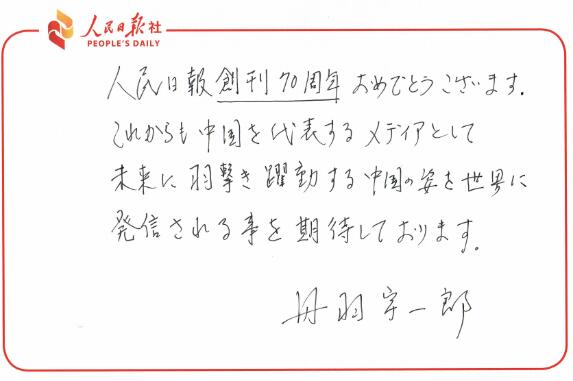 人民日报社
PEOPLE'S DAILY
人民日報創刊70周年おめでとうございます.
これからも中国を代表するメディアとして
未来に羽撃き躍動する中国の姿を世界に
発信される事を期待しております。
丹羽宇一郎